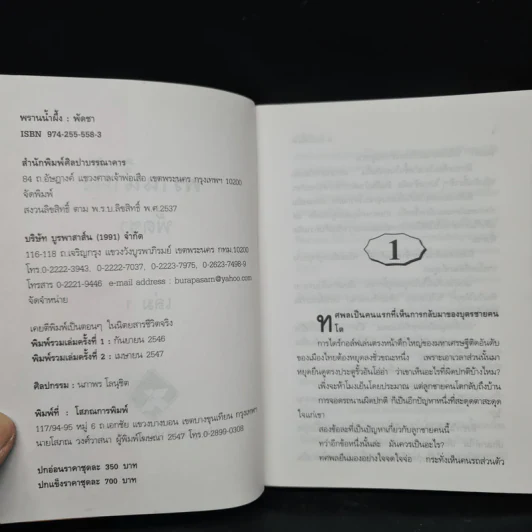 พรานน้ำผึ้ง : พัดชา
ISBN 974-255-558-3
สำนักพิมพ์ศิลปาบรรณาคาร
84 ถ.อัษฎางค์ แขวงศาลเจ้าพ่อเสือ เขตพระนคร กรุงเทพฯ 10200
จัดพิมพ์
สงวนลิขสิทธิ์ ตาม พ.ร.บ.ลิขสิทธิ์ พ.ศ.2537
บริษัท บูรพาสาส์น (1991) จำกัด
116-118 ถ.เจริญกรุง แขวงวังบูรพาภิรมย์ เขตพระนคร กทม.10200
โทร.0-2222-3943, 0-2222-7037, 0-2223-7975, 0-2623-7498-9
โทรสาร 0-2221-9446 e-mail address : burapasarn@yahoo.com
จัดจำหน่าย
เคยตีพิมพ์เป็นตอนๆ ในนิตยสารชีวิตจริง
พิมพ์รวมเล่มครั้งที่ 1 : กันยายน 2546
พิมพ์รวมเล่มครั้งที่ 2 : เมษายน 2547
ศิลปกรรม : นภาพร โอนุชิต
พิมพ์ที่ : โสภณการพิมพ์
117/94-95 หมู่ 6 ถ.เอกชัย แขวงบางบอน เขตบางขุนเทียน กรุงเทพฯ
นายโสภณ วงศ์วาสนา ผู้พิมพ์โฆษณา 2547 โทร.0-2899-0308
ปกอ่อนราคาชุดละ 350 บาท
ปกแข็งราคาชุดละ 700 บาท
1
ทศพลเป็นคนแรกที่เห็นการกลับมาของบุตรชายคน
โต
การไดร์กอล์ฟเล่นตรงหน้าตึกใหญ่ของมหาเศรษฐีติดอันดับ
ของเมืองไทยต้องหยุดลงชั่วขณะหนึ่ง เพราะเอาเวลาส่วนนี้มา
หยุดยืนดูตรงประตูรั้วอันโอ่อ่า ว่าเขาเห็นอะไรที่ผิดปกติบ้างไหม?
เพิ่งจะห้าโมงเย็นโดยประมาณ แต่ลูกชายคนโตกลับถึงบ้าน
การจอดรถนานผิดปกติ ก็เป็นอีกปัญหาหนึ่งที่สะดุดตาสะดุด
ใจแก่เขา
สองข้อละที่เป็นปัญหาเกี่ยวกับลูกชายคนนี้
ทว่าอีกข้อหนึ่งนั้นล่ะ มันควรเป็นอะไร?
ทศพลยืนมองอย่างใจจดใจจ่อ กระทั่งเห็นคนรถส่วนตัว